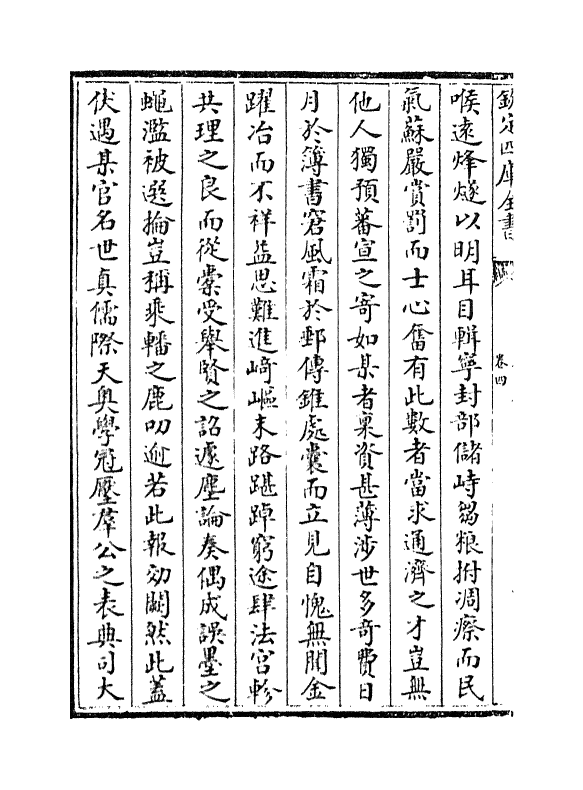 欽定四庫全書
卷四
喉逺烽燧以明耳目輯寜封部儲峙芻粮拊凋瘵而民
氣蘇嚴賞罰而士心奮有此數者當求通濟之才豈無
他人獨預蕃宣之寄如某者稟資甚薄涉世多竒費日
月於簿書窘風霜於郵傳錐處囊而立見自愧無聞金
躍冶而不祥益思難進﨑嶇末路踸踔窮途肆法宫軫
共理之良而從橐受舉賢之詔遽塵論奏偶成誤墨之
蝇濫被選掄豈稱乘轓之鹿叨逾若此報効闕然此蓋
伏遇某官名世真儒際天奥學冠壓羣公之表典司大